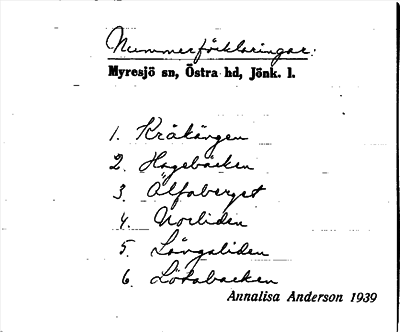 Nummerförklaringar:
Myresjö sn, Östra hd, Jönk. l.
1. Kråkängen
2. Hagebäcken
3. Älfaberget
4. Norliden
5. Långaliden
6. Lökabacken
Annalisa Anderson 1939